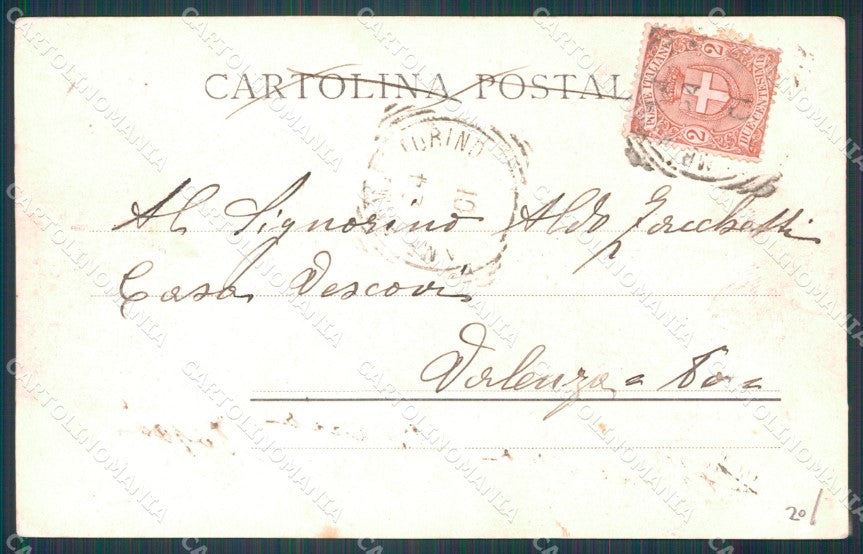 CARTOLINA POSTAL
POSTE ITALIANE
2 2
DUE CENTESIMI
TORINO
4
01
Al Signorino Aldo Zacchetti
Casa Vescovi
Valenza = Po =
20/
CARTOLINOMANIA